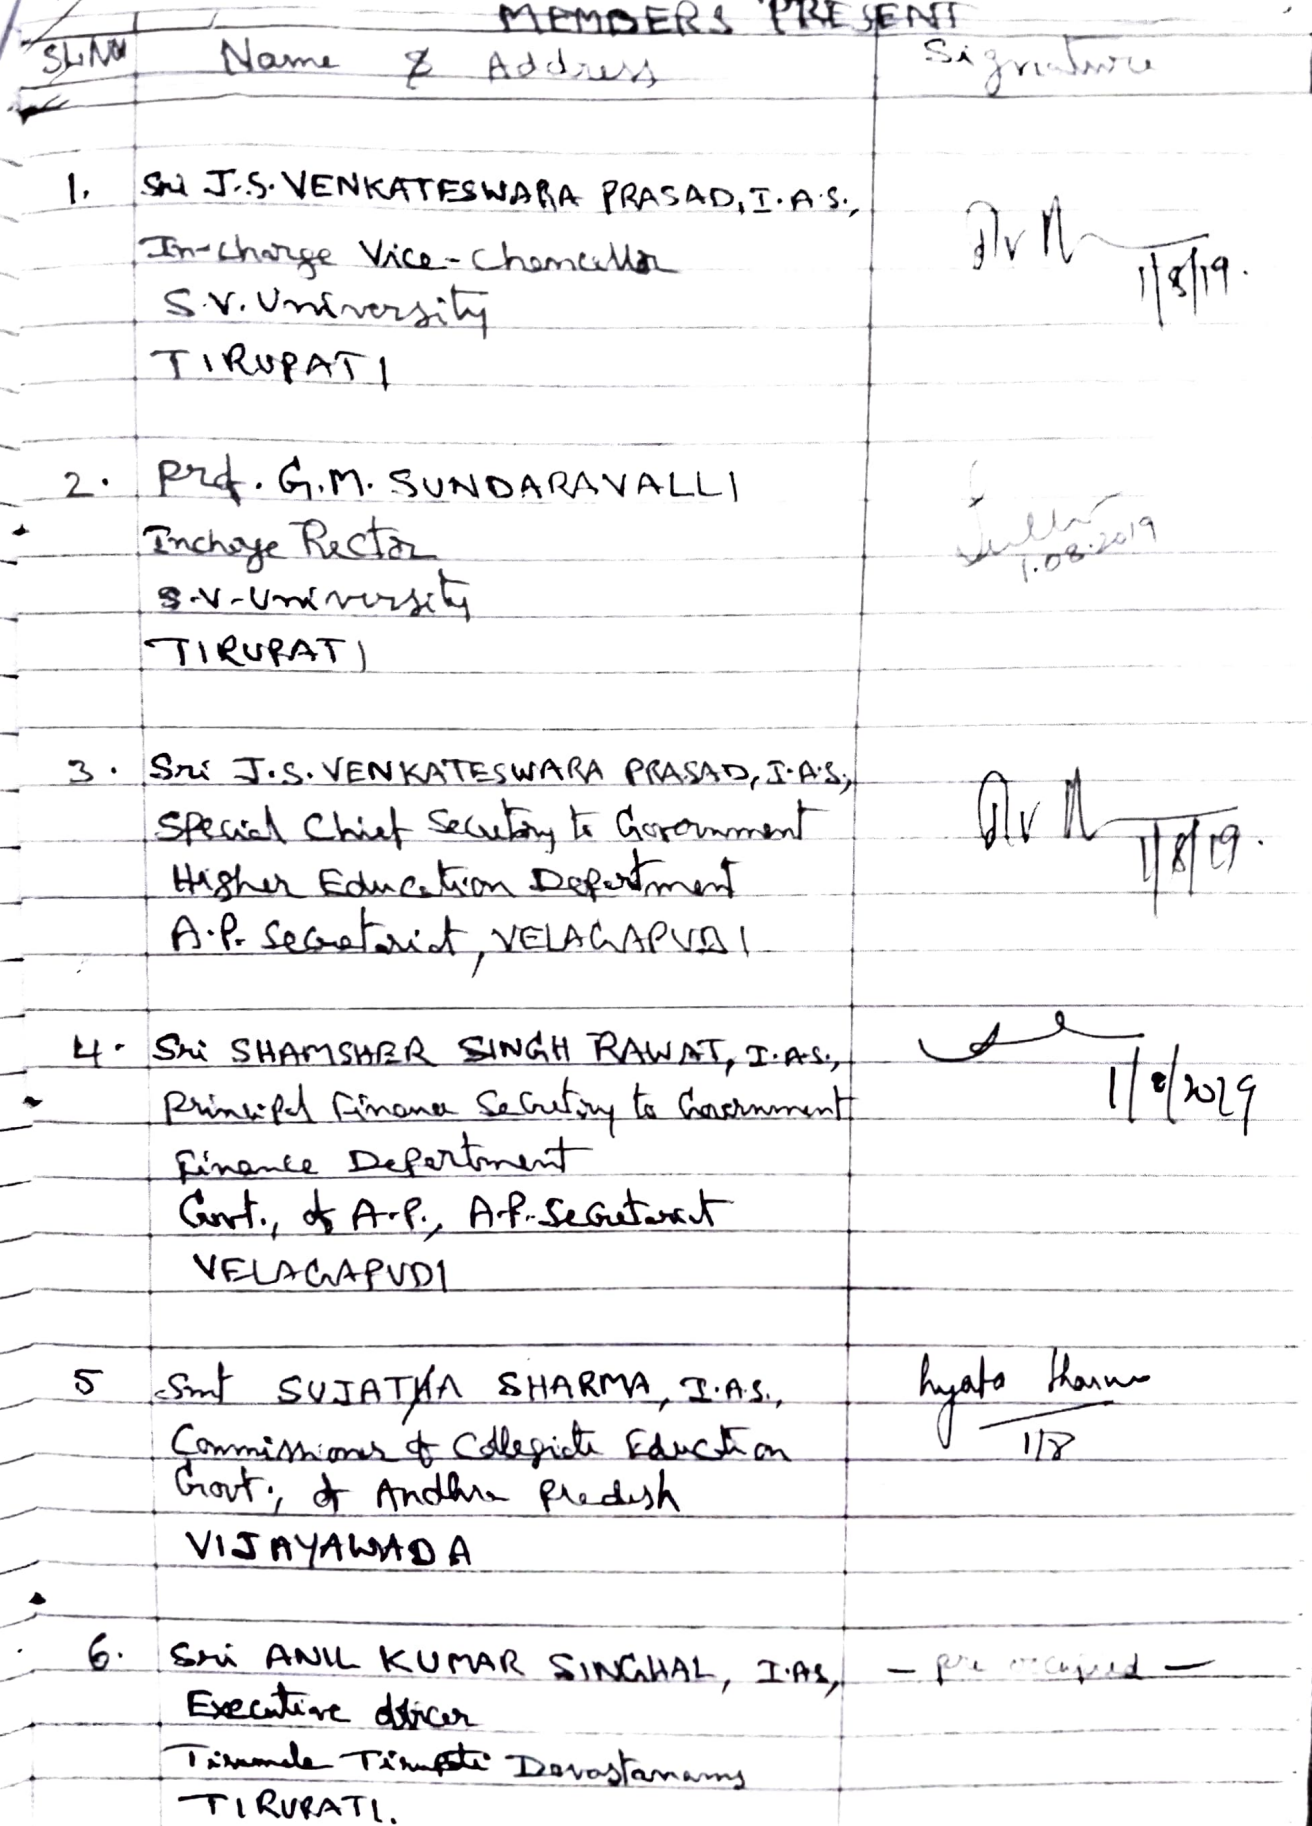 MEMBERS PRESENT
Sl.No Name & Address Signature
1. Sri J.S. VENKATESWARA PRASAD, I.A.S.,
In-charge Vice-Chancellor
S.V. University
TIRUPATI
1/8/19.
2. Prof. G.M. SUNDARAVALLI
Incharge Rector
S.V. University
TIRUPATI
1.08.2019
3. Sri J.S. VENKATESWARA PRASAD, I.A.S.,
Special Chief Secretary to Government
Higher Education Department
A.P. Secretariat, VELAGAPUDI
1/8/19.
4. Sri SHAMSHER SINGH RAWAT, I.A.S.,
Principal Finance Secretary to Government
Finance Department
Govt., of A.P., A.P. Secretariat
VELAGAPUDI
1/8/2019
5 Smt SUJATHA SHARMA, I.A.S.,
Commissioner of Collegiate Education
Govt., of Andhra Pradesh
VIJAYAWADA
Sharma
1/8
6. Sri ANIL KUMAR SINGHAL, I.AS, - pre occupied -
Executive Officer
Tirumala Tirupati Devastanams
TIRUPATI.